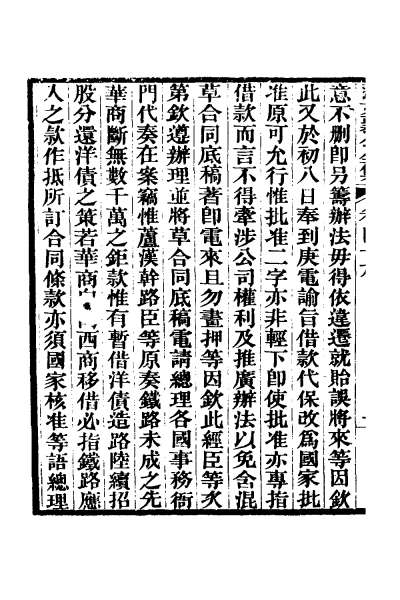 意不刪卽另籌辦法毋得依違遷就貽誤將來等因欽
此又於初八日奉到庚電諭旨借款代保改爲國家批
准原可允行惟批准二字亦非輕下卽使批准亦專指
借款而言不得牽涉公司權利及推廣辦法以免含混
草合同底稿著卽電來且勿畫押等因欽此經臣等次
第欽遵辦理並將草合同底稿電請總理各國事務衙
門代奏在案竊惟蘆漢幹路臣等原奏鐵路未成之先
華商斷無數千萬之鉅款惟有暫借洋債造路陸續招
股分還洋債之策若華商 西商移借必指鐵路應
入之款作抵所訂合同條款亦須國家核准等語總理